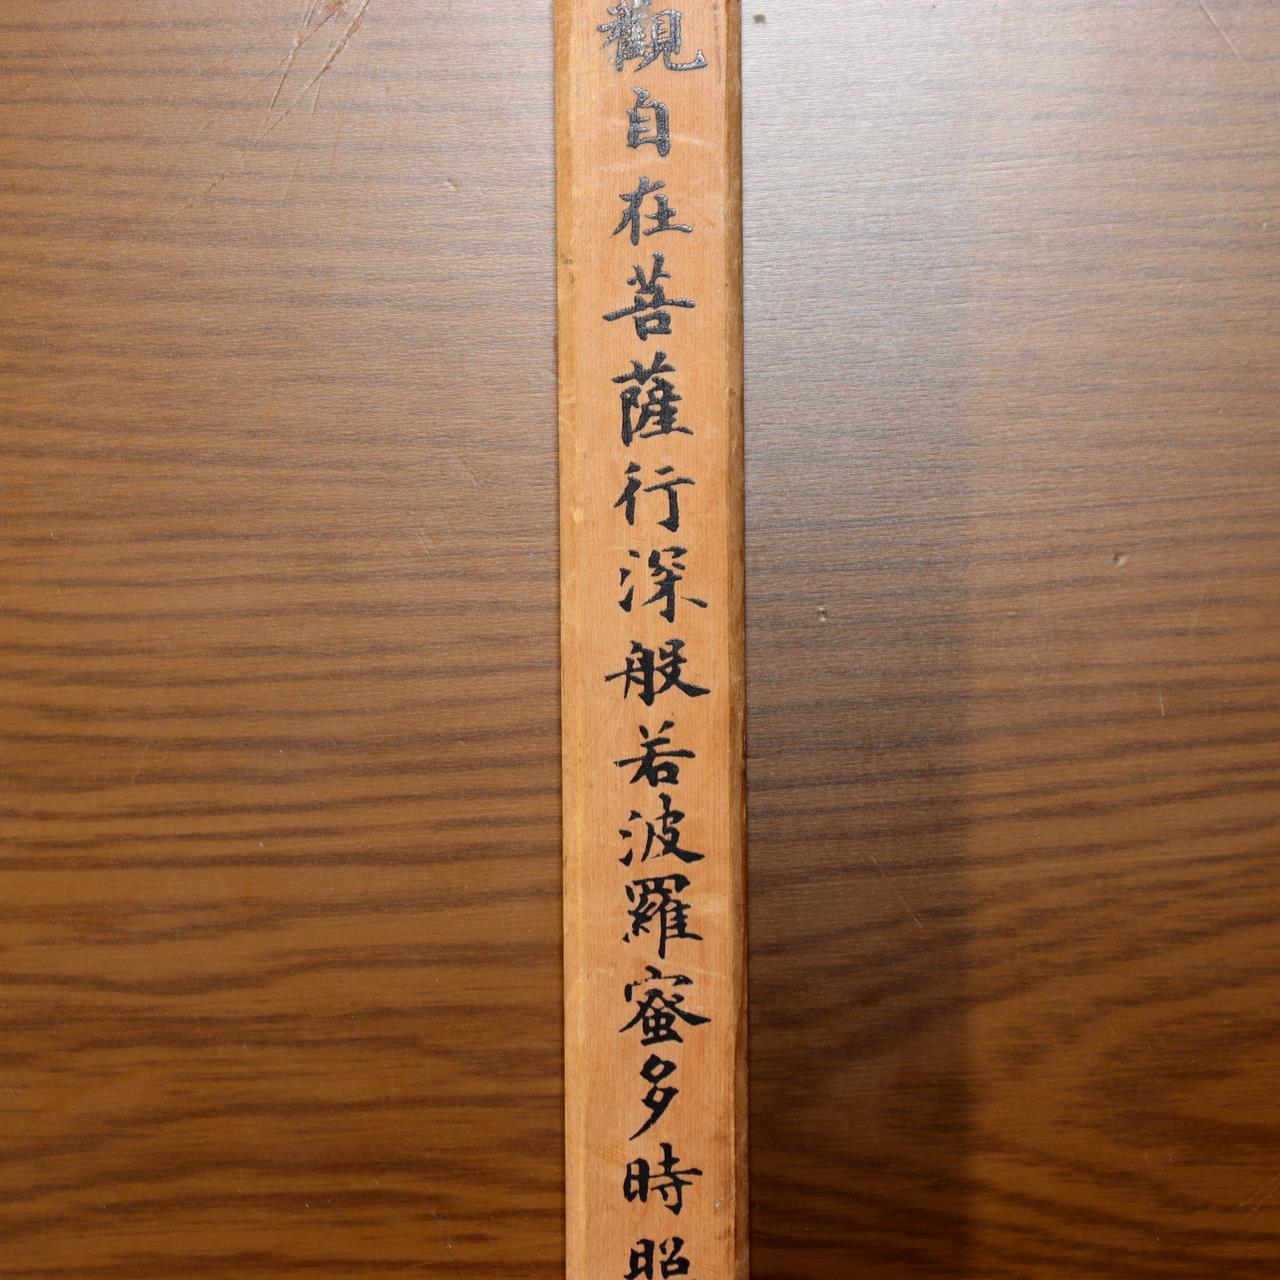 觀自在菩薩行深般若波羅蜜多時照